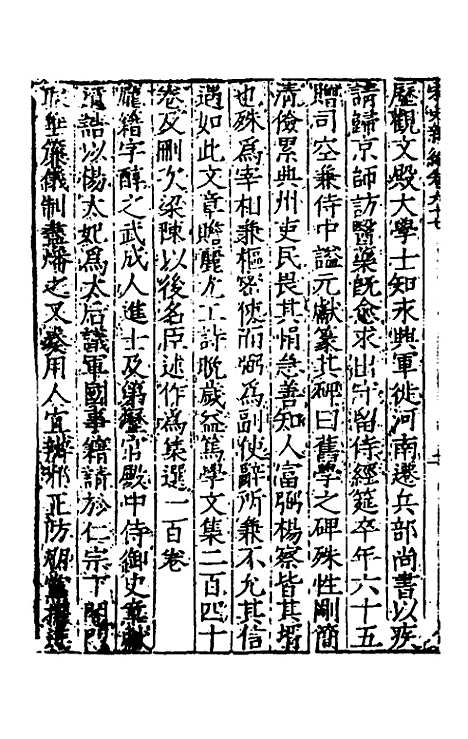 宋史新編卷九十七
歷觀文殿大學士知永興軍徙河南遷兵部尚書以疾
請歸京師訪醫藥旣愈求出守留侍經筵卒年六十五
贈司空兼侍中諡元獻篆其碑曰舊學之碑殊性剛簡
清儉累典州吏民畏其悁急善知人富弼楊察皆其壻
也殊爲宰相兼樞密使而弼爲副使辭所兼不允其信
遇如此文章贍麗尤工詩晩歲益篤學文集二百四十
卷及刪次梁陳以後名臣述作爲集選一百卷
龐籍字醇之武成人進士及第歷官殿中侍御史章獻
遺誥以楊太妃爲太后議軍國事籍請於仁宗下閤門
取垂簾儀制盡燔之又奏用人宜辨邪正防朋黨擢